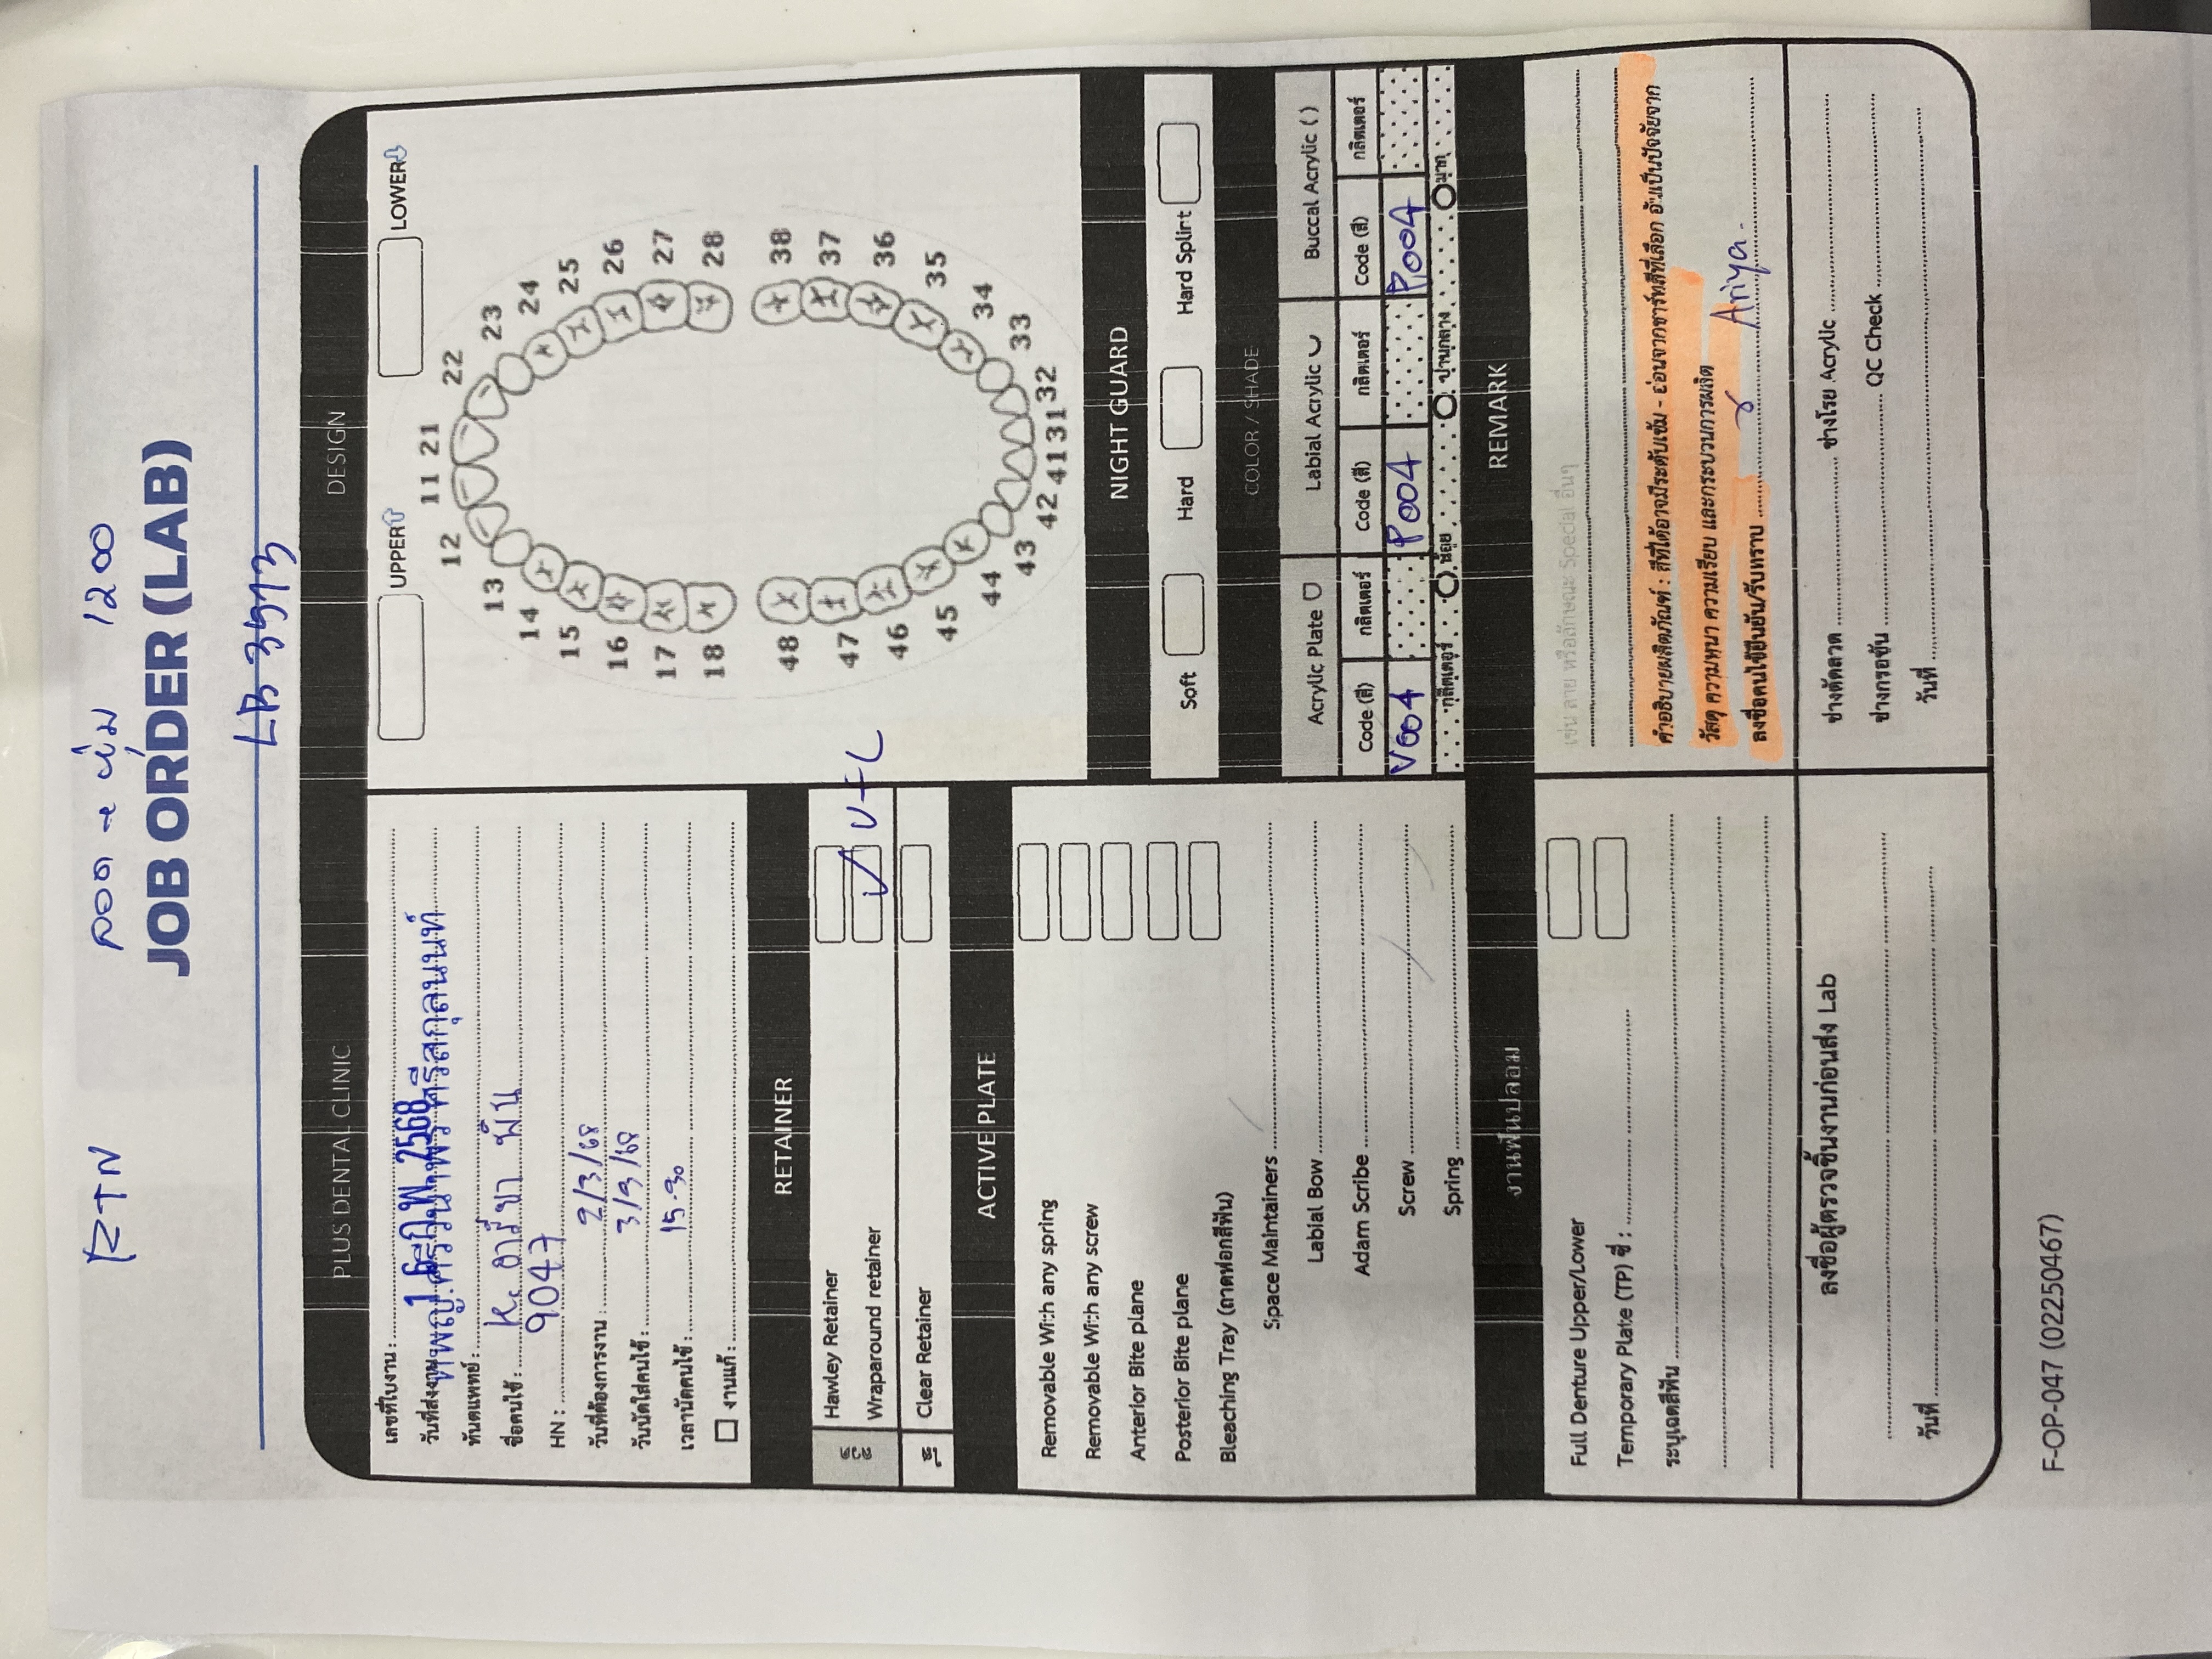 RTN ลอด → ปั้ม 1200
JOB ORDER (LAB)
LB 3573
PLUS DENTAL CLINIC
เลขที่ใบงาน :
วันที่ส่งงาน 16 ก.พ. 2568
ทันตแพทย์ :
ชื่อคนไข้ : K. อารียา พัน
HN : 9047
วันที่ต้องการงาน : 2/3/68
วันนัดใส่คนไข้ : 3/3/68
เวลานัดคนไข้ : 15.30
งานแก้ :
RETAINER
Hawley Retainer
Wraparound retainer U+L
Clear Retainer
ACTIVE PLATE
Removable With any spring
Removable With any screw
Anterior Bite plane
Posterior Bite plane
Bleaching Tray (ถาดฟอกสีฟัน)
Space Maintainers
Labial Bow
Adam Scribe
Screw
Spring
งานฟันปลอม
Full Denture Upper/Lower
Temporary Plate (TP) ซี่ :
ระบุเฉดสีฟัน
ลงชื่อผู้ตรวจชิ้นงานก่อนส่ง Lab
วันที่
DESIGN
UPPER LOWER
12 11 21 22
13 23
14 24
15 25
16 26
17 27
18 28
48 38
47 37
46 36
45 35
44 34
43 33
42 41 31 32
NIGHT GUARD
Soft Hard Hard Splint
COLOR / SHADE
Acrylic Plate Labial Acrylic Buccal Acrylic ( )
Code (สี) กลิตเตอร์ Code (สี) กลิตเตอร์ Code (สี) กลิตเตอร์
V004 P004 P004
กลิตเตอร์ น้อย ปานกลาง มาก
REMARK
เช่น ลาย หรือลักษณะ Special อื่นๆ
คำอธิบายผลิตภัณฑ์ : สีที่ได้อาจมีระดับเข้ม - อ่อนจากชาร์ทสีที่เลือก อันเป็นปัจจัยจาก
วัสดุ ความหนา ความเรียบ และกระบวนการผลิต
ลงชื่อคนไข้ยืนยัน/รับทราบ Ariya.
ช่างดัดลวด ช่างโรย Acrylic
ช่างกรอขัน QC Check
วันที่
F-OP-047 (02250467)